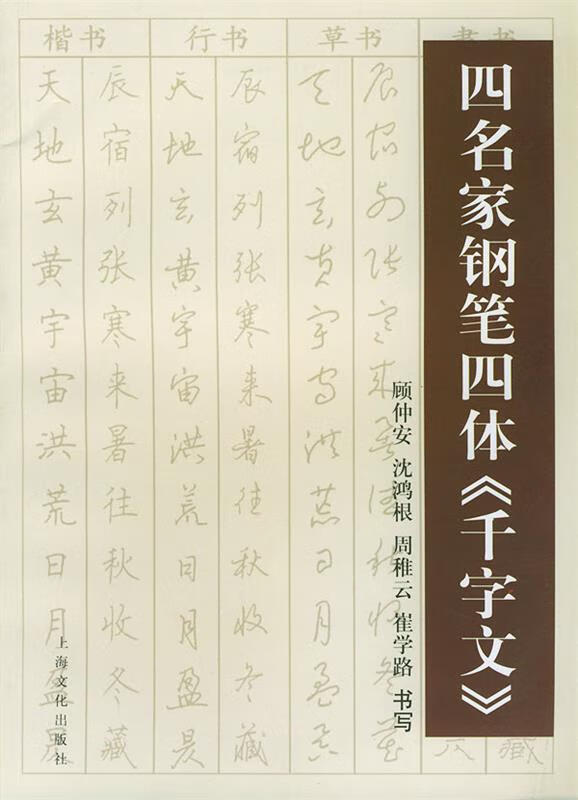 四名家钢笔四体《千字文》
顾仲安 沈鸿根 周稚云 崔学路 书写
上海文化出版社
楷书
天地玄黄宇宙洪荒日月盈昃
辰宿列张寒来暑往秋收冬藏
行书
天地玄黄宇宙洪荒日月盈昃
辰宿列张寒来暑往秋收冬藏
草书
天地玄黄宇宙洪荒日月盈昃
辰宿列张寒来暑往秋收冬藏
藏